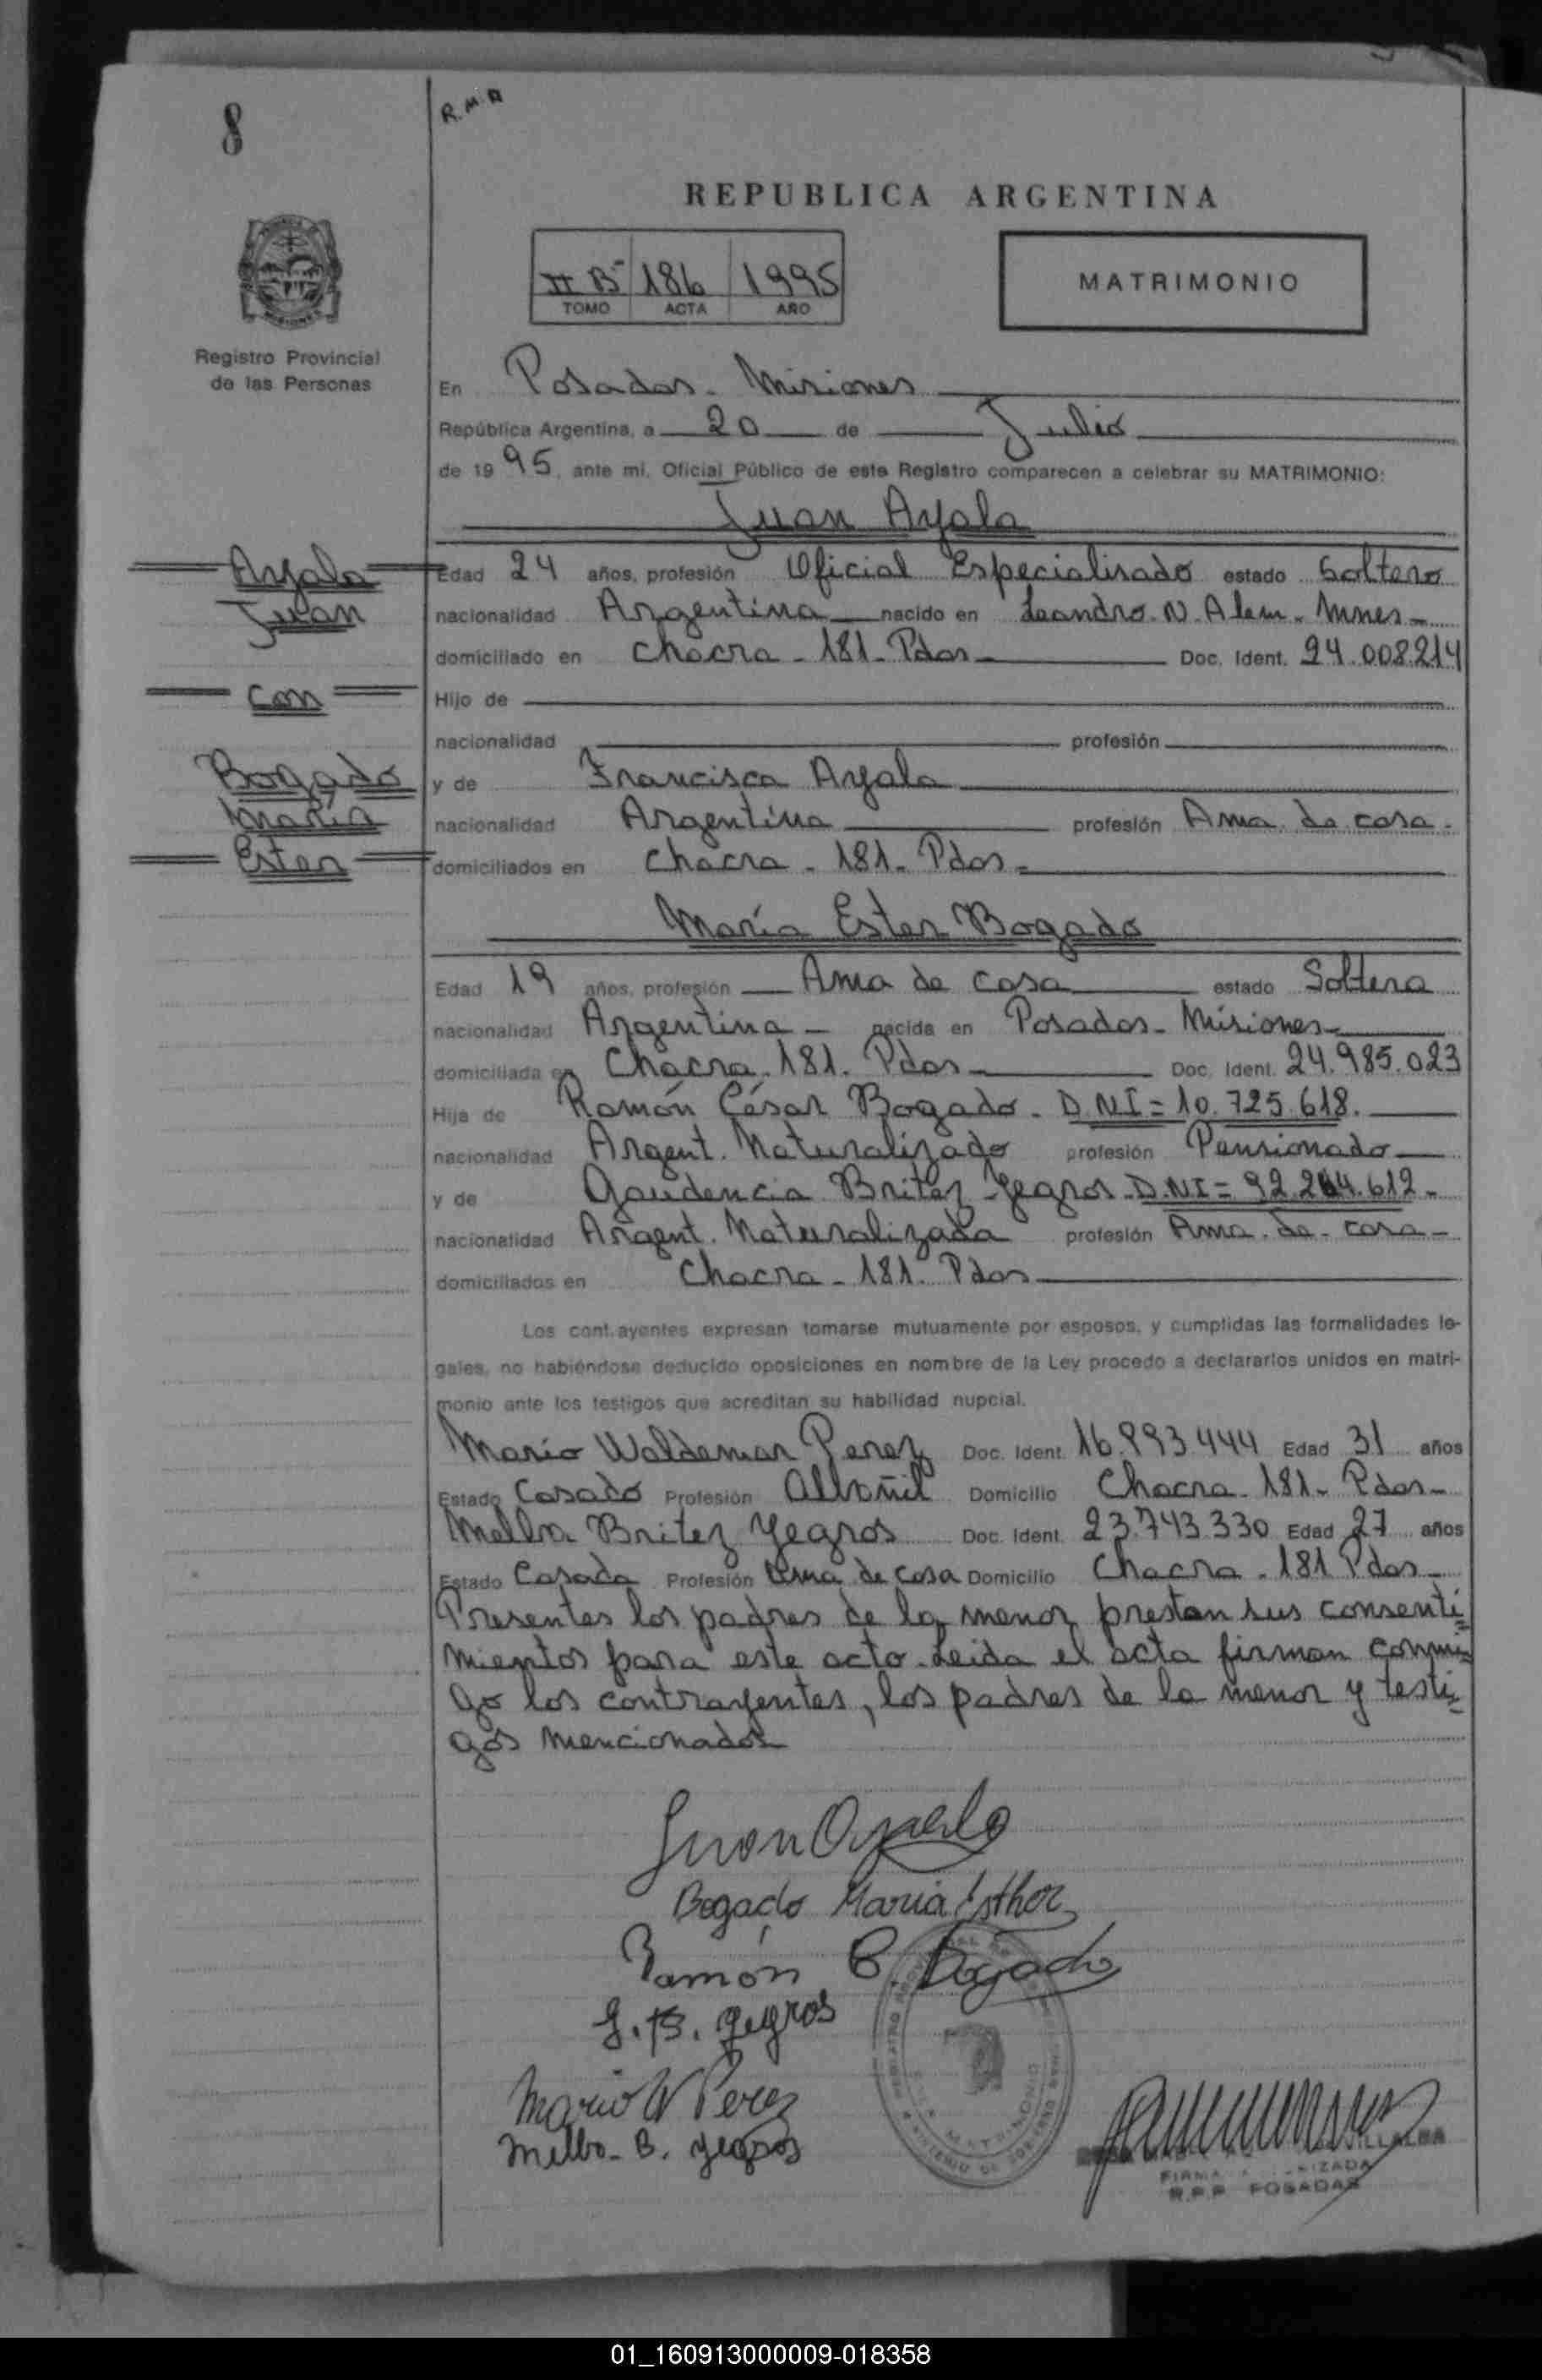 8
R.M.A
REPUBLICA ARGENTINA
II Bº 186 1995
TOMO ACTA AÑO
MATRIMONIO
Registro Provincial
de las Personas
En Posadas - Misiones
República Argentina, a 20 de Julio
de 1995, ante mi, Oficial Público de este Registro comparecen a celebrar su MATRIMONIO:
Juan Ayala
Ayala
Juan
con
Bogado
María
Ester
Edad 24 años, profesión Oficial Especialisado estado Soltero
nacionalidad Argentina nacido en Leandro. N. Alem - Mnes -
domiciliado en Chacra - 181 - Pdas - Doc. Ident. 24.008.214
Hijo de
nacionalidad profesión
y de Francisca Ayala
nacionalidad Argentina profesión Ama de casa.
domiciliados en Chacra - 181 - Pdas -
María Ester Bogado
Edad 19 años, profesión Ama de casa estado Soltera
nacionalidad Argentina - nacida en Posadas - Misiones -
domiciliada en Chacra. 181. Pdas Doc. Ident. 24.985.023
Hija de Ramón César Bogado - D.N.I = 10.725.618.
nacionalidad Argent. Naturalizado profesión Pensionado
y de Gaudencia Britez Yegros - D.N.I =
nacionalidad Argent. Naturalizada profesión Ama - de - casa -
domiciliados en Chacra - 181. Pdas
Los cont.ayentes expresan tomarse mutuamente por esposos, y cumplidas las formalidades le-
gales, no habiéndose deducido oposiciones en nombre de la Ley procedo a declararlos unidos en matri-
monio ante los testigos que acreditan su habilidad nupcial.
Mario Waldemar Perez Doc. Ident. 16.893.444 Edad 31 años
Estado Casado Profesión Albañil Domicilio Chacra - 181 - Pdas -
Melba Britez Yegros Doc. Ident. 23.743.330 Edad 27 años
Estado Casada Profesión Ama de casa Domicilio Chacra - 181 Pdas -
Presentes los padres de la menor prestan sus consenti=
mientos para este acto. Leida el acta firman conmi=
go los contrayentes, los padres de la menor y testi=
gos mencionados
Juan Ayala
Bogado Maria Esther
Ramón C. Bogado
G. B. Yegros
Mario W Perez
Melba - B. Yegros
MATRIMONIO
VILLALBA
FIRMA
R.P.P. POSADAS
01_160913000009-018358